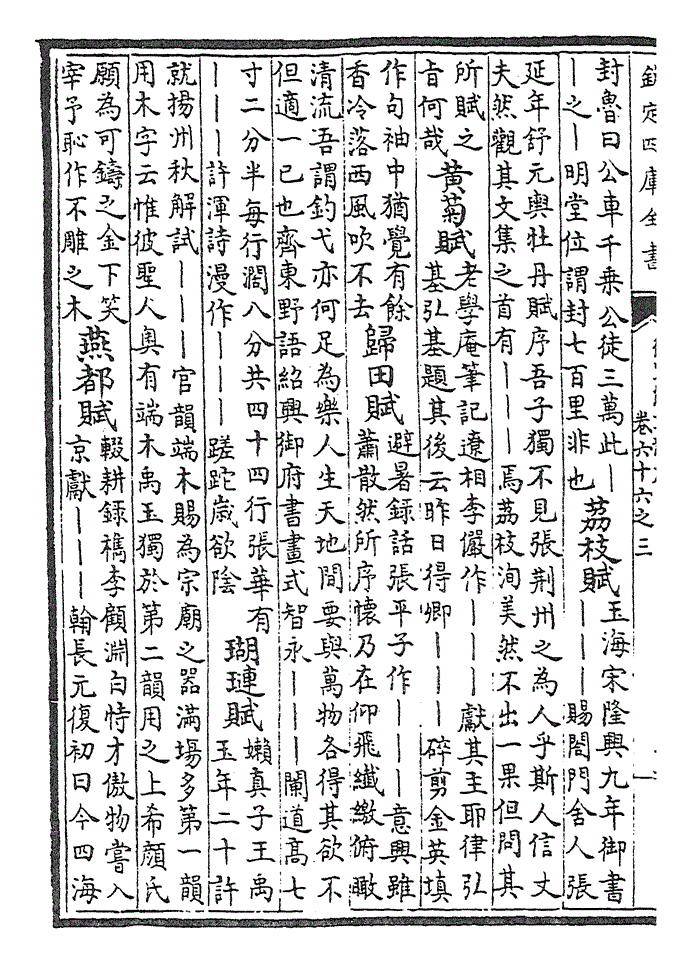 欽定四庫全書
卷六十六之三
封魯曰公車千乗公徒三萬此丨
丨之丨明堂位謂封七百里非也
荔枝賦
玉海宋隆興九年御書
丨丨丨賜閤門舍人張
延年舒元輿牡丹賦序吾子獨不見張荆州之為人乎斯人信丈
夫然觀其文集之首有丨丨丨焉荔枝洵美然不出一果但問其
所賦之
㫖何哉
黄菊賦
老學庵筆記遼相李儼作丨丨丨獻其主耶律弘
基弘基題其後云昨日得卿丨丨丨碎剪金英填
作句袖中猶覺有餘
香冷落西風吹不去
歸田賦
避暑録話張平子作丨丨丨意興雖
蕭散然所序懐乃在仰飛纖繳俯瞰
清流吾謂釣弋亦何足為樂人生天地間要與萬物各得其欲不
但適一已也齊東野語紹興御府書畫式智永丨丨丨闌道髙七
寸二分半每行濶八分共四十四行張華有
丨丨丨許渾詩漫作丨丨丨蹉跎嵗欲陰
瑚璉賦
嬾真子王禹
玉年二十許
就揚州秋解試丨丨丨官韻端木賜為宗廟之器滿場多第一韻
用木字云惟彼聖人奥有端木禹玉獨於第二韻用之上希顔氏
願為可鑄之金下笑
宰予恥作不雕之木
燕都賦
輟耕録檇李顧淵白恃才傲物嘗入
京獻丨丨丨翰長元復初曰今四海